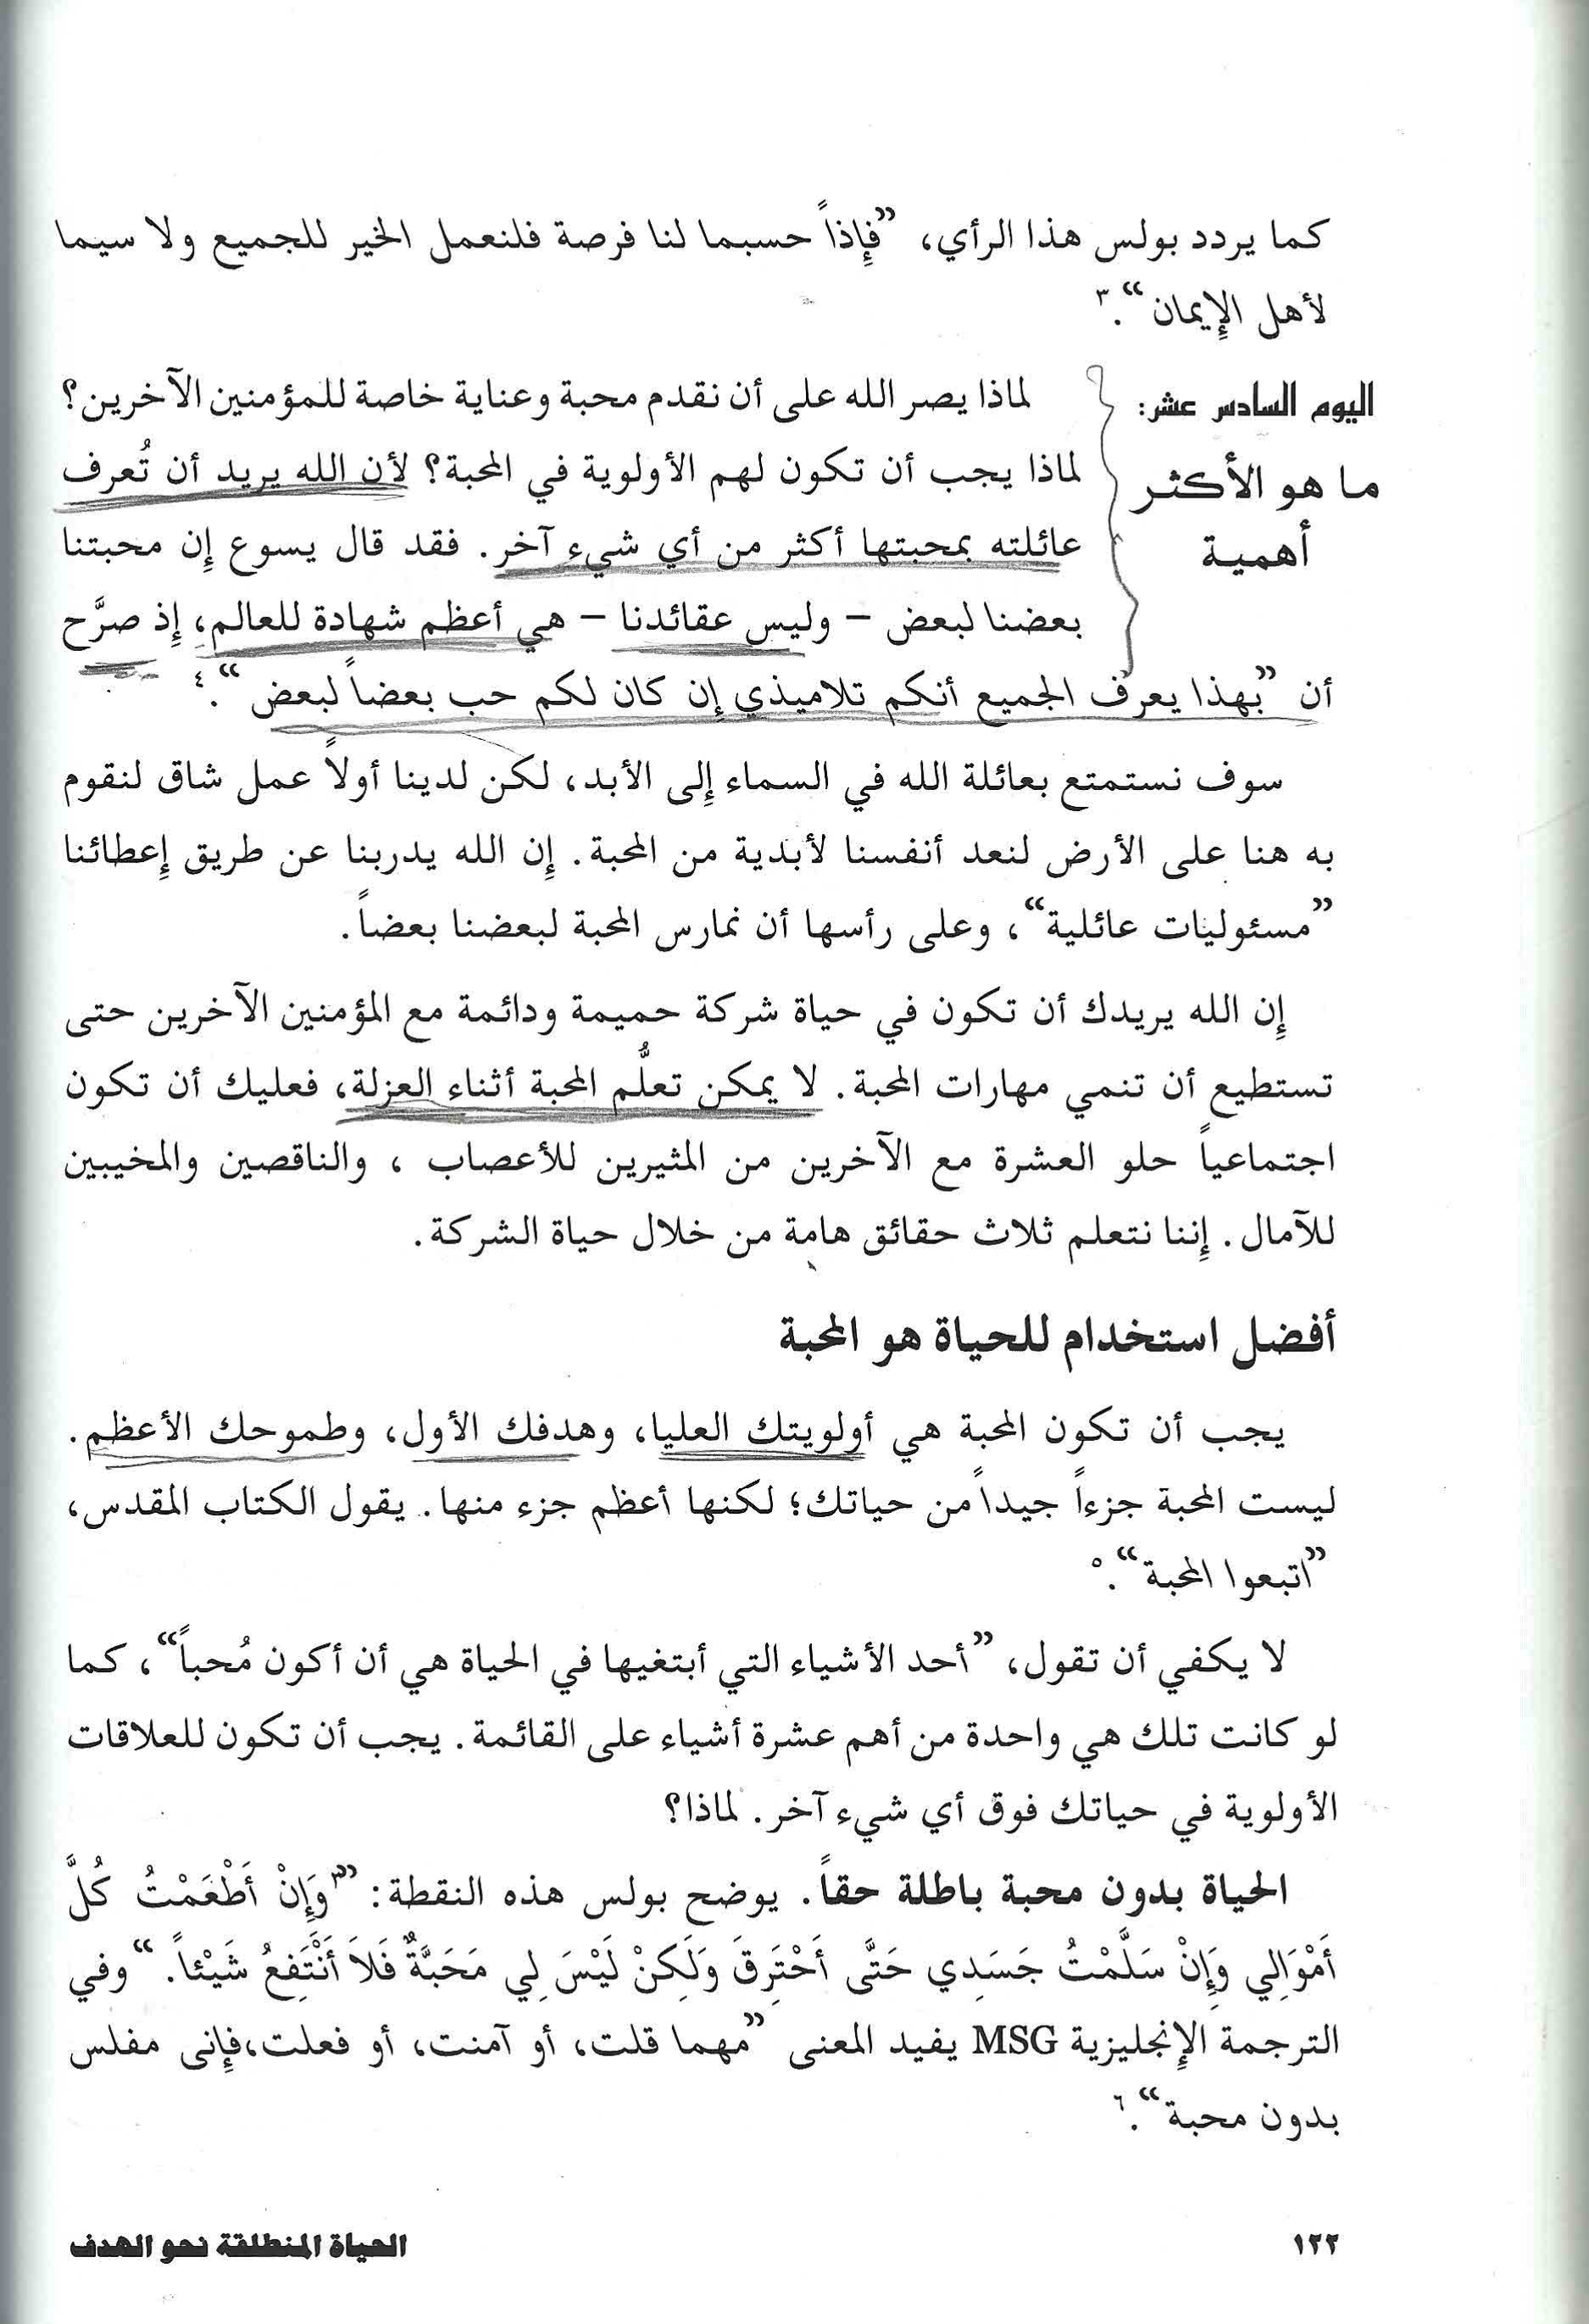 كما يردد بولس هذا الرأي، ”فإِذاً حسبما لنا فرصة فلنعمل الخير للجميع ولا سيما
لأهل الإِيمان“.٣
اليوم السادس عشر:
ما هو الأكثر
أهمية
لماذا يصر الله على أن نقدم محبة وعناية خاصة للمؤمنين الآخرين؟
لماذا يجب أن تكون لهم الأولوية في المحبة؟ لأن الله يريد أن تُعرف
عائلته بمحبتها أكثر من أي شيء آخر. فقد قال يسوع إِن محبتنا
بعضنا لبعض – وليس عقائدنا – هي أعظم شهادة للعالم، إِذ صرَّح
أن ”بهذا يعرف الجميع أنكم تلاميذي إِن كان لكم حب بعضاً لبعض“.٤
سوف نستمتع بعائلة الله في السماء إِلى الأبد، لكن لدينا أولاً عمل شاق لنقوم
به هنا على الأرض لنعد أنفسنا لأبدية من المحبة. إِن الله يدربنا عن طريق إِعطائنا
”مسئوليات عائلية“، وعلى رأسها أن نمارس المحبة لبعضنا بعضاً.
إِن الله يريدك أن تكون في حياة شركة حميمة ودائمة مع المؤمنين الآخرين حتى
تستطيع أن تنمي مهارات المحبة. لا يمكن تعلُّم المحبة أثناء العزلة، فعليك أن تكون
اجتماعياً حلو العشرة مع الآخرين من المثيرين للأعصاب ، والناقصين والمخيبين
للآمال. إِننا نتعلم ثلاث حقائق هامة من خلال حياة الشركة.
أفضل استخدام للحياة هو المحبة
يجب أن تكون المحبة هي أولويتك العليا، وهدفك الأول، وطموحك الأعظم.
ليست المحبة جزءاً جيداً من حياتك؛ لكنها أعظم جزء منها. يقول الكتاب المقدس،
”اتبعوا المحبة“.٥
لا يكفي أن تقول، ”أحد الأشياء التي أبتغيها في الحياة هي أن أكون مُحباً“، كما
لو كانت تلك هي واحدة من أهم عشرة أشياء على القائمة. يجب أن تكون للعلاقات
الأولوية في حياتك فوق أي شيء آخر. لماذا؟
الحياة بدون محبة باطلة حقاً. يوضح بولس هذه النقطة: ”٣وَإِنْ أَطْعَمْتُ كُلَّ
أَمْوَالِي وَإِنْ سَلَّمْتُ جَسَدِي حَتَّى أَحْتَرِقَ وَلَكِنْ لَيْسَ لِي مَحَبَّةٌ فَلاَ أَنْتَفِعُ شَيْئاً.“ وفي
الترجمة الإِنجليزية MSG يفيد المعنى ”مهما قلت، أو آمنت، أو فعلت،فإِنى مفلس
بدون محبة“.٦
١٢٢
الحياة المنطلقة نحو الهدف